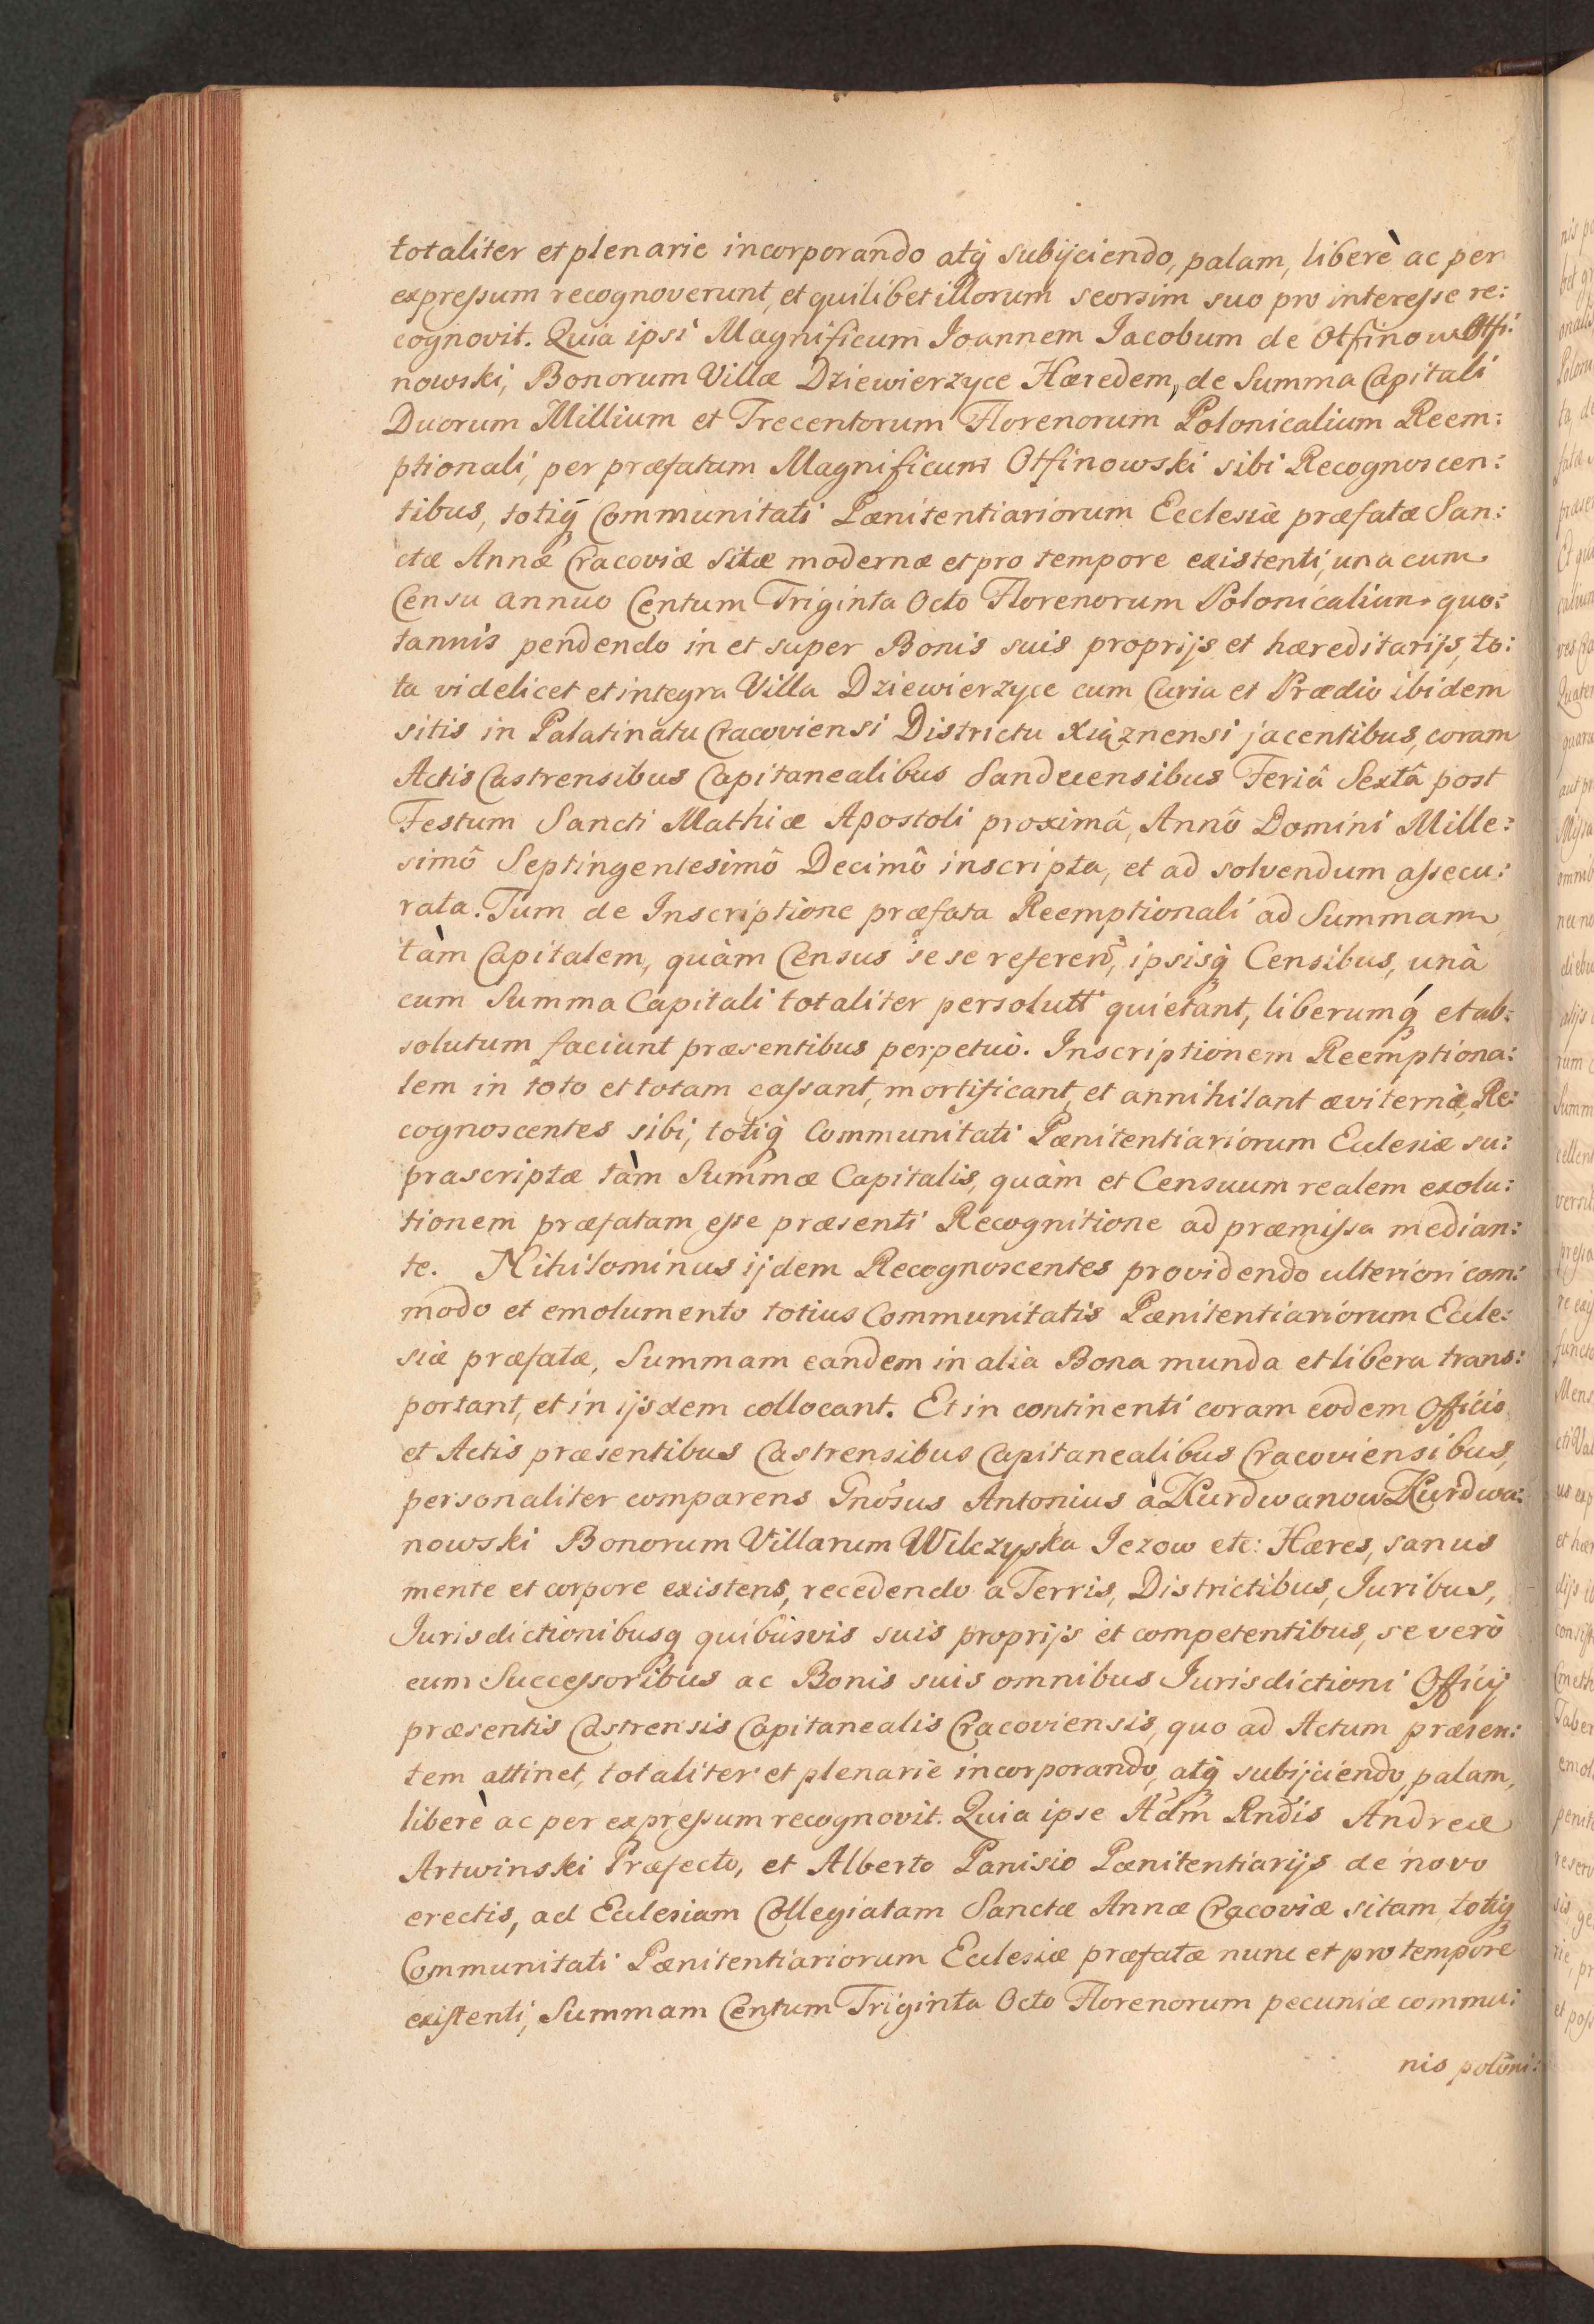 totaliter et plenarie incorporando atq̃ subijciendo, palam, liberè ac per
expressum recognoverunt, et quilibet illorum seorsim suo pro interesse re:
cognovit. Quia ipsi Magnificum Joannem Jacobum de Otfinow Otfi:
nowski, Bonorum Villæ Dziewierzyce Hæredem, de Summa Capitali
Duorum Millium et Trecentorum Florenorum Polonicalium Reem:
ptionali, per præfatum Magnificum Otfinowski sibi Recognoscen:
tibus, totiq̃ Communitati Pænitentiariorum Ecclesiæ præfatæ San:
ctæ Annæ Cracoviæ sitæ modernæ et pro tempore existenti, una cum
Censu annuo Centum Triginta Octo Florenorum Polonicalium quo:
tannis pendendo in et super Bonis suis proprijs et hæreditarijs, to:
ta videlicet et integra Villa Dziewierzyce cum Curia et Prædio ibidem
sitis in Palatinatu Cracoviensi Districtu Xiąznensi jacentibus, coram
Actis Castrensibus Capitanealibus Sandecensibus Feriâ Sextâ post
Festum Sancti Mathiæ Apostoli proximâ, Annô Domini Mille:
simô Septingentesimô Decimô inscripta, et ad solvendum assecu:
rata. Tum de Inscriptione præfata Reemptionali ad Summam
tàm Capitalem, quàm Census se se referen̄, ipsisq̃ Censibus, unà
cum Summa Capitali totaliter persolutt quietant, liberumq́ et ab:
solutum faciunt præsentibus perpetuò. Inscriptionem Reemptiona:
lem in toto et totam cassant, mortificant, et annihilant æviternè, Re:
cognoscentes sibi, totiq̃ Communitati Pænitentiariorum Ecclesiæ su:
prascriptæ tàm Summæ Capitalis, quàm et Censuum realem exolu:
tionem præfatam esse præsenti Recognitione ad præmissa median:
te. Nihilominus ijdem Recognoscentes providendo ulteriori com:
modo et emolumento totius Communitatis Pænitentiariorum Eccle:
siæ præfatæ, Summam eandem in alia Bona munda et libera trans:
portant, et in ijsdem collocant. Et in continenti coram eodem Officio
et Actis præsentibus Castrensibus Capitanealibus Cracoviensibus,
personaliter comparens Gnõsus Antonius à Kurdwanow Kurdwa:
nowski Bonorum Villarum Wilczyska Jezow etc: Hæres, sanus
mente et corpore existens, recedendo a Terris, Districtibus, Juribus,
Jurisdictionibusq quibusvis suis proprijs et competentibus, se verò
cum Successoribus ac Bonis suis omnibus Jurisdictioni Officij
præsentis Castrensis Capitanealis Cracoviensis, quo ad Actum præsen:
tem attinet, totaliter et plenariè incorporando, atq̃ subijciendo, palam,
liberè ac per expressum recognovit. Quia ipse Adm̃ Rndis Andreæ
Artwinski Præfecto, et Alberto Panisio Pænitentiarijs de novo
erectis, ad Ecclesiam Collegiatam Sanctæ Annæ Cracoviæ sitam, totiq
Communitati Pænitentiariorum Ecclesiæ præfatæ nunc et pro tempore
existenti, Summam Centum Triginta Octo Florenorum pecuniæ commu:
nis poloni: